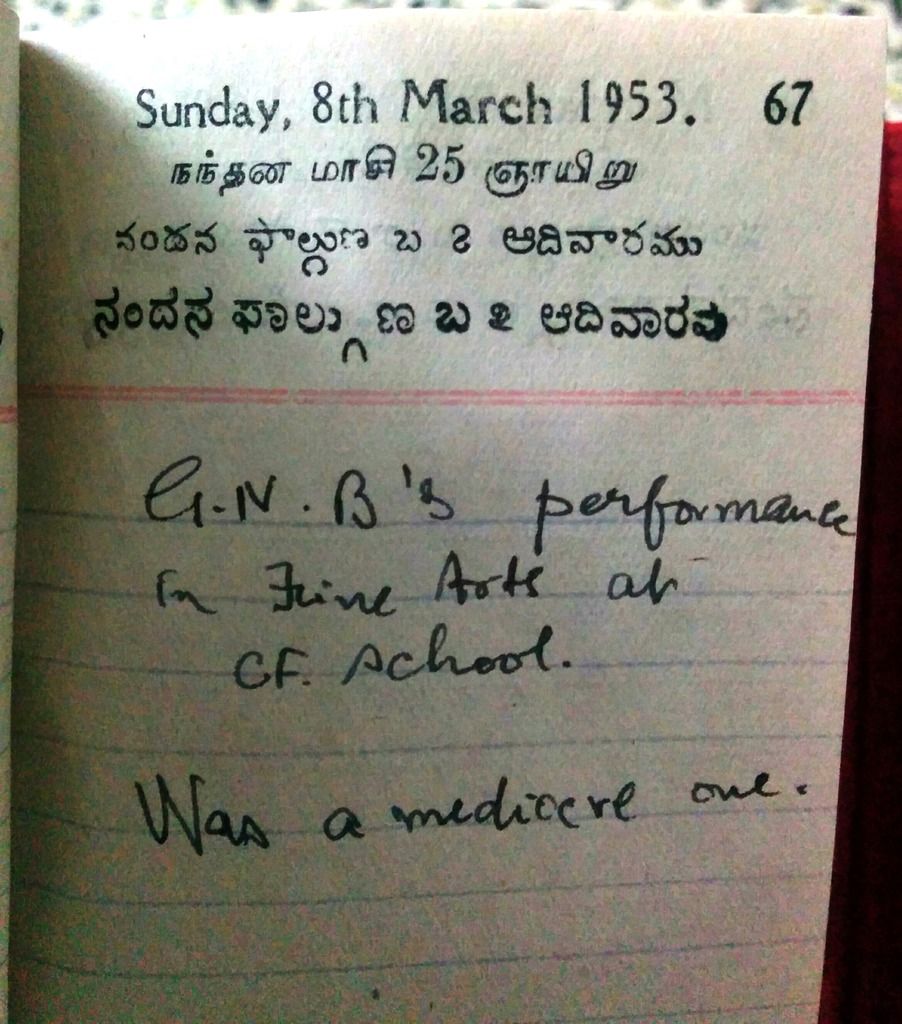 Sunday, 8th March 1953. 67
நந்தன மாசி 25 ஞாயிறு
నందన ఫాల్గుణ బ ౭ ఆదివారము
ನಂದನ ಫಾಲ್ಗುಣ ಬ ೭ ಆದಿವಾರವು
G.N.B's performance
in Fine Arts at
CF. School.
Was a mediocre one.